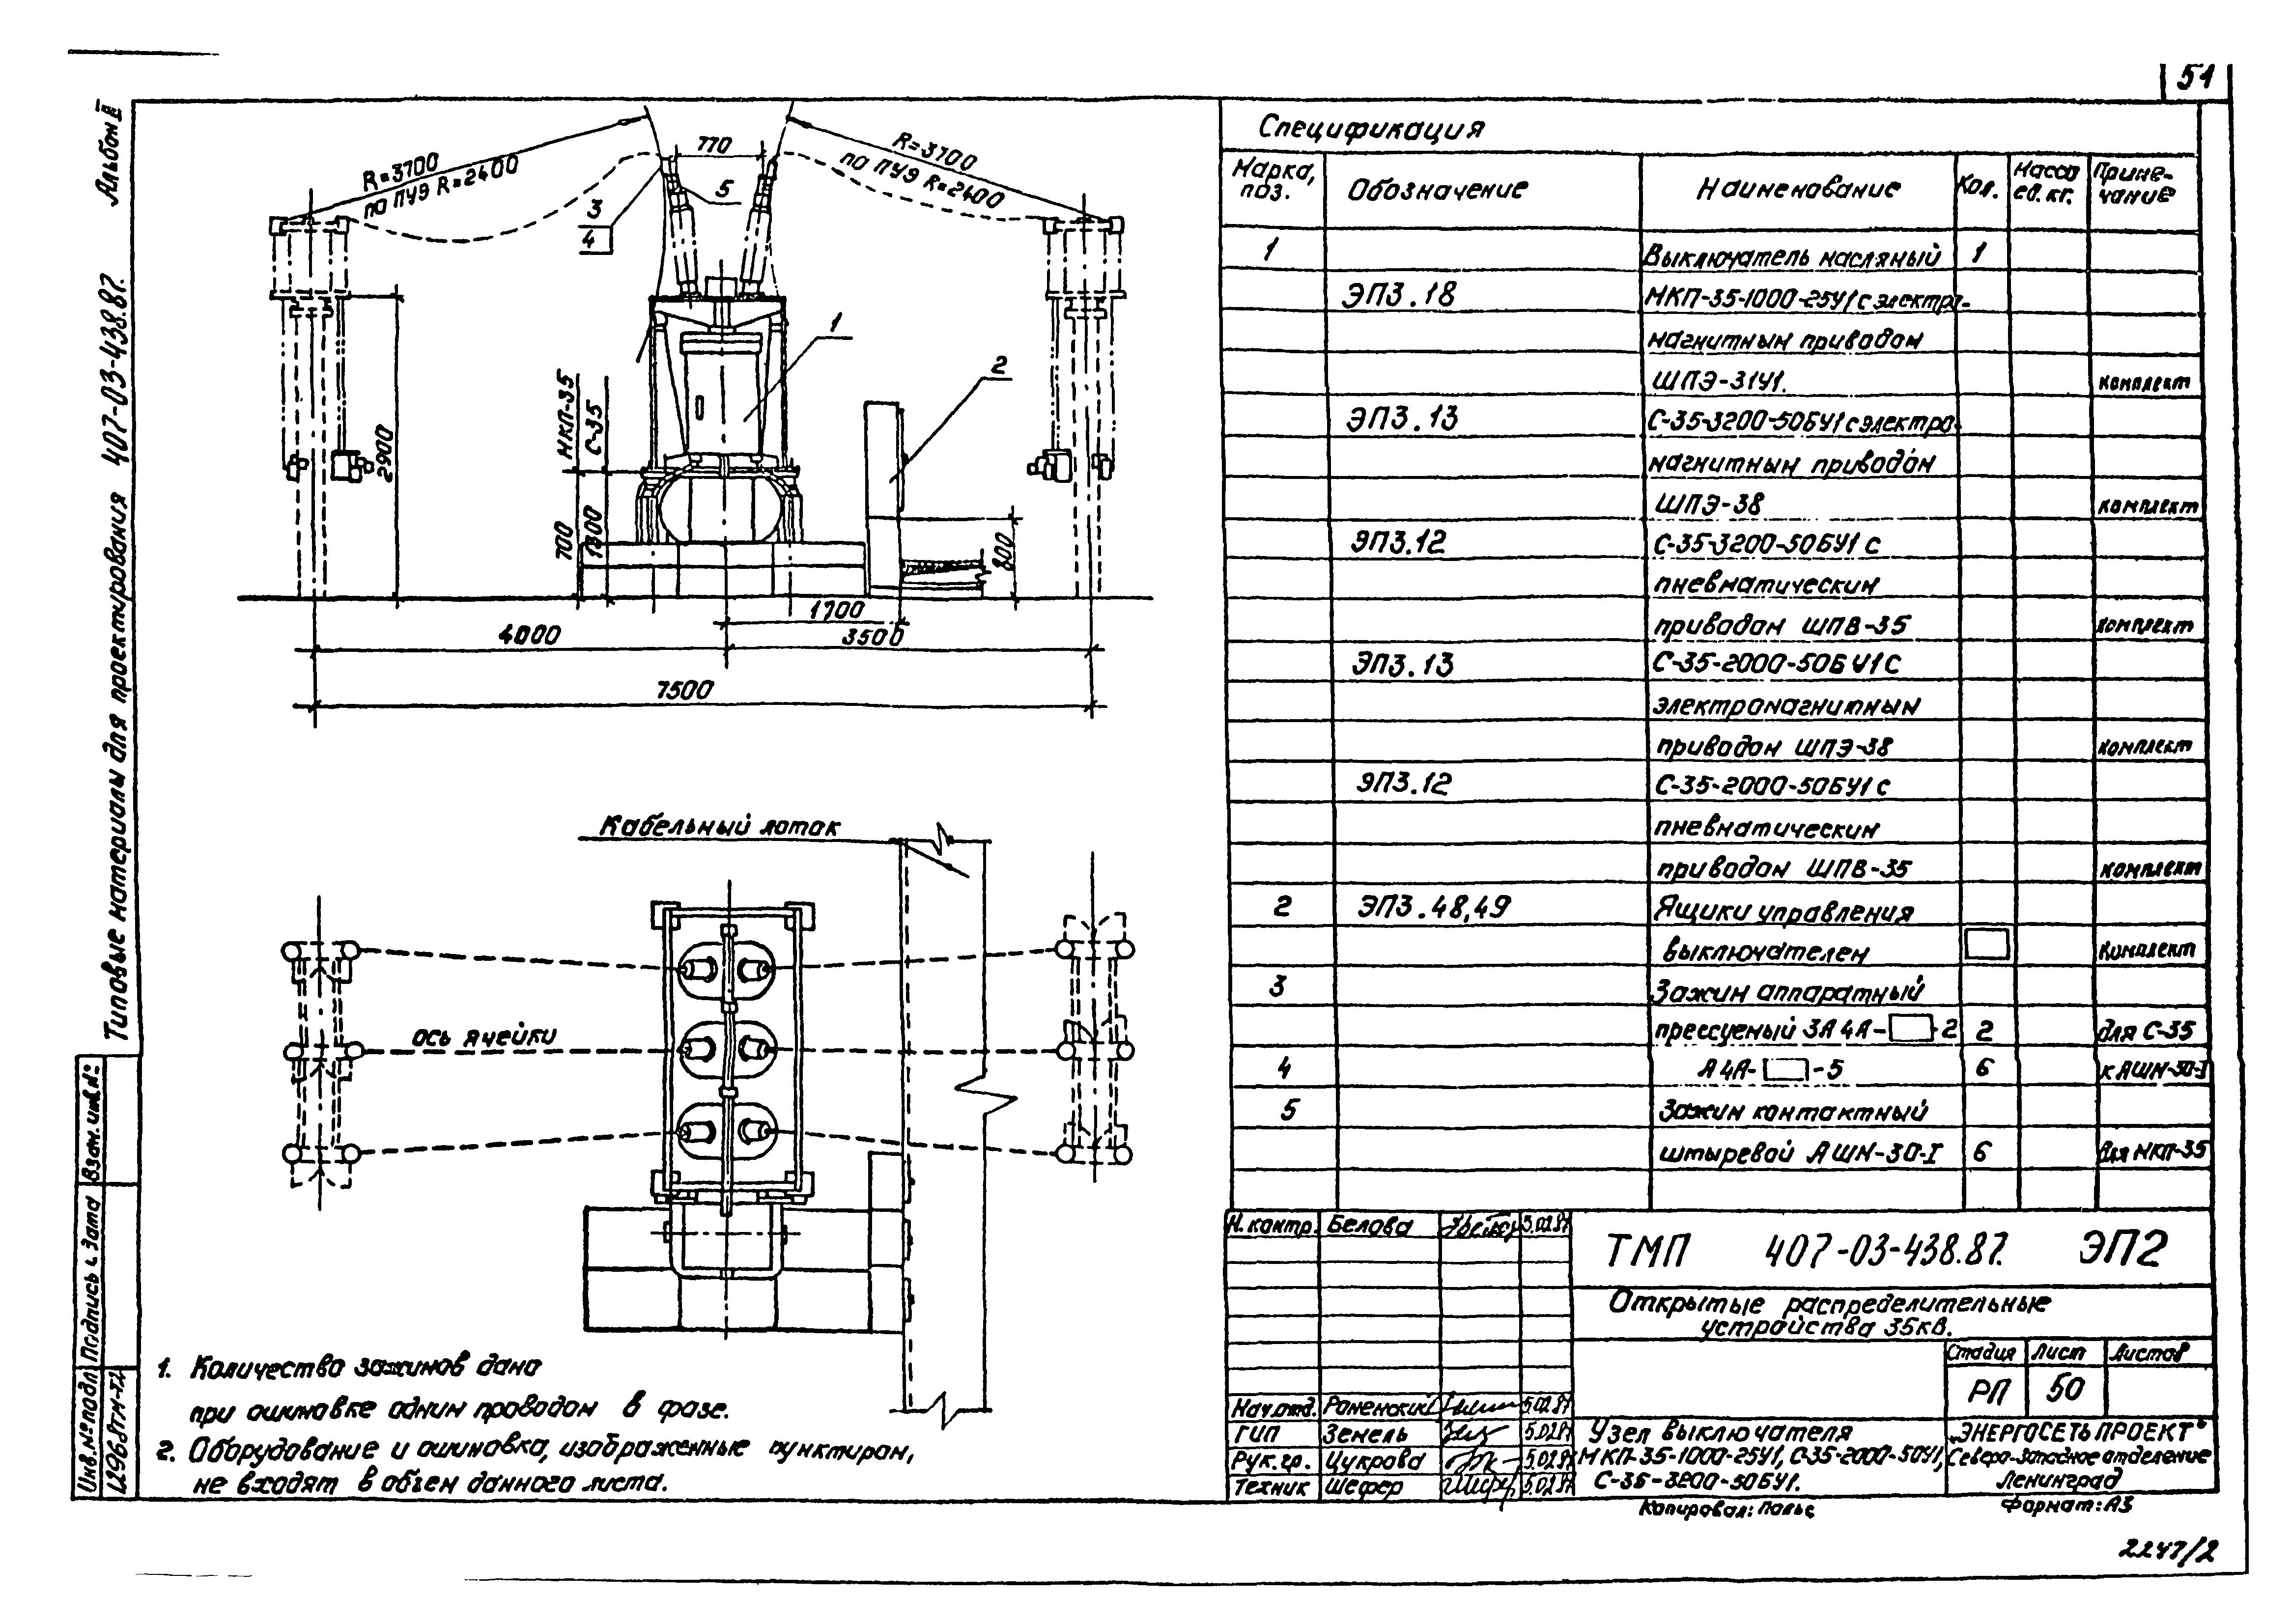 51
Альбом II
407-03-438.87.
Типовые материалы для проектирования
R=3700
по ПУЭ R=2400
770
R=3700
по ПУЭ R=2400
3
4
5
1
2
МКП-35
С-35
2900
700
1300
800
1700
4000
3500
7500
Кабельный лоток
ось ячейки
1. Количество зажимов дано
при ошиновке одним проводом в фазе.
2. Оборудование и ошиновка, изображенные пунктиром,
не входят в объем данного листа.
Спецификация
Марка, поз. Обозначение Наименование Кол. Масса ед. кг. Примечание
1 Выключатель масляный 1
ЭП3.18 МКП-35-1000-25У1 с электро-
магнитным приводом
ШПЭ-31У1. комплект
ЭП3.13 С-35-3200-50БУ1 с электро-
магнитным приводом
ШПЭ-38 комплект
ЭП3.12 С-35-3200-50БУ1 с
пневматическим
приводом ШПВ-35 комплект
ЭП3.13 С-35-2000-50БУ1 С
электромагнитным
приводом ШПЭ-38 комплект
ЭП3.12 С-35-2000-50БУ1 с
пневматическим
приводом ШПВ-35 комплект
2 ЭП3.48,49 Ящики управления
выключателем комплект
3 Зажим аппаратный
прессуемый 3А 4А- -2 2 для С-35
4 А4А- -5 6 к АШМ-30-I
5 Зажим контактный
штыревой АШМ-30-I 6 для МКП-35
Н. контр. Белова 5.02.87
ТМП 407-03-438.87. ЭП2
Открытые распределительные
устройства 35кВ.
Стадия Лист Листов
РП 50
Нач. отд. Роменский 5.02.87
ГИП Земель 5.02.87
Рук. гр. Цукрова 5.02.87
Техник Шефер 5.02.87
Узел выключателя
МКП-35-1000-25У1, С-35-2000-50У1,
С-35-3200-50БУ1.
„ЭНЕРГОСЕТЬПРОЕКТ"
Северо-Западное отделение
Ленинград
Копировал: Формат: А3
2247/2
Взам. инв. №
Подпись и дата
Инв. № подл.
12968тм-т2